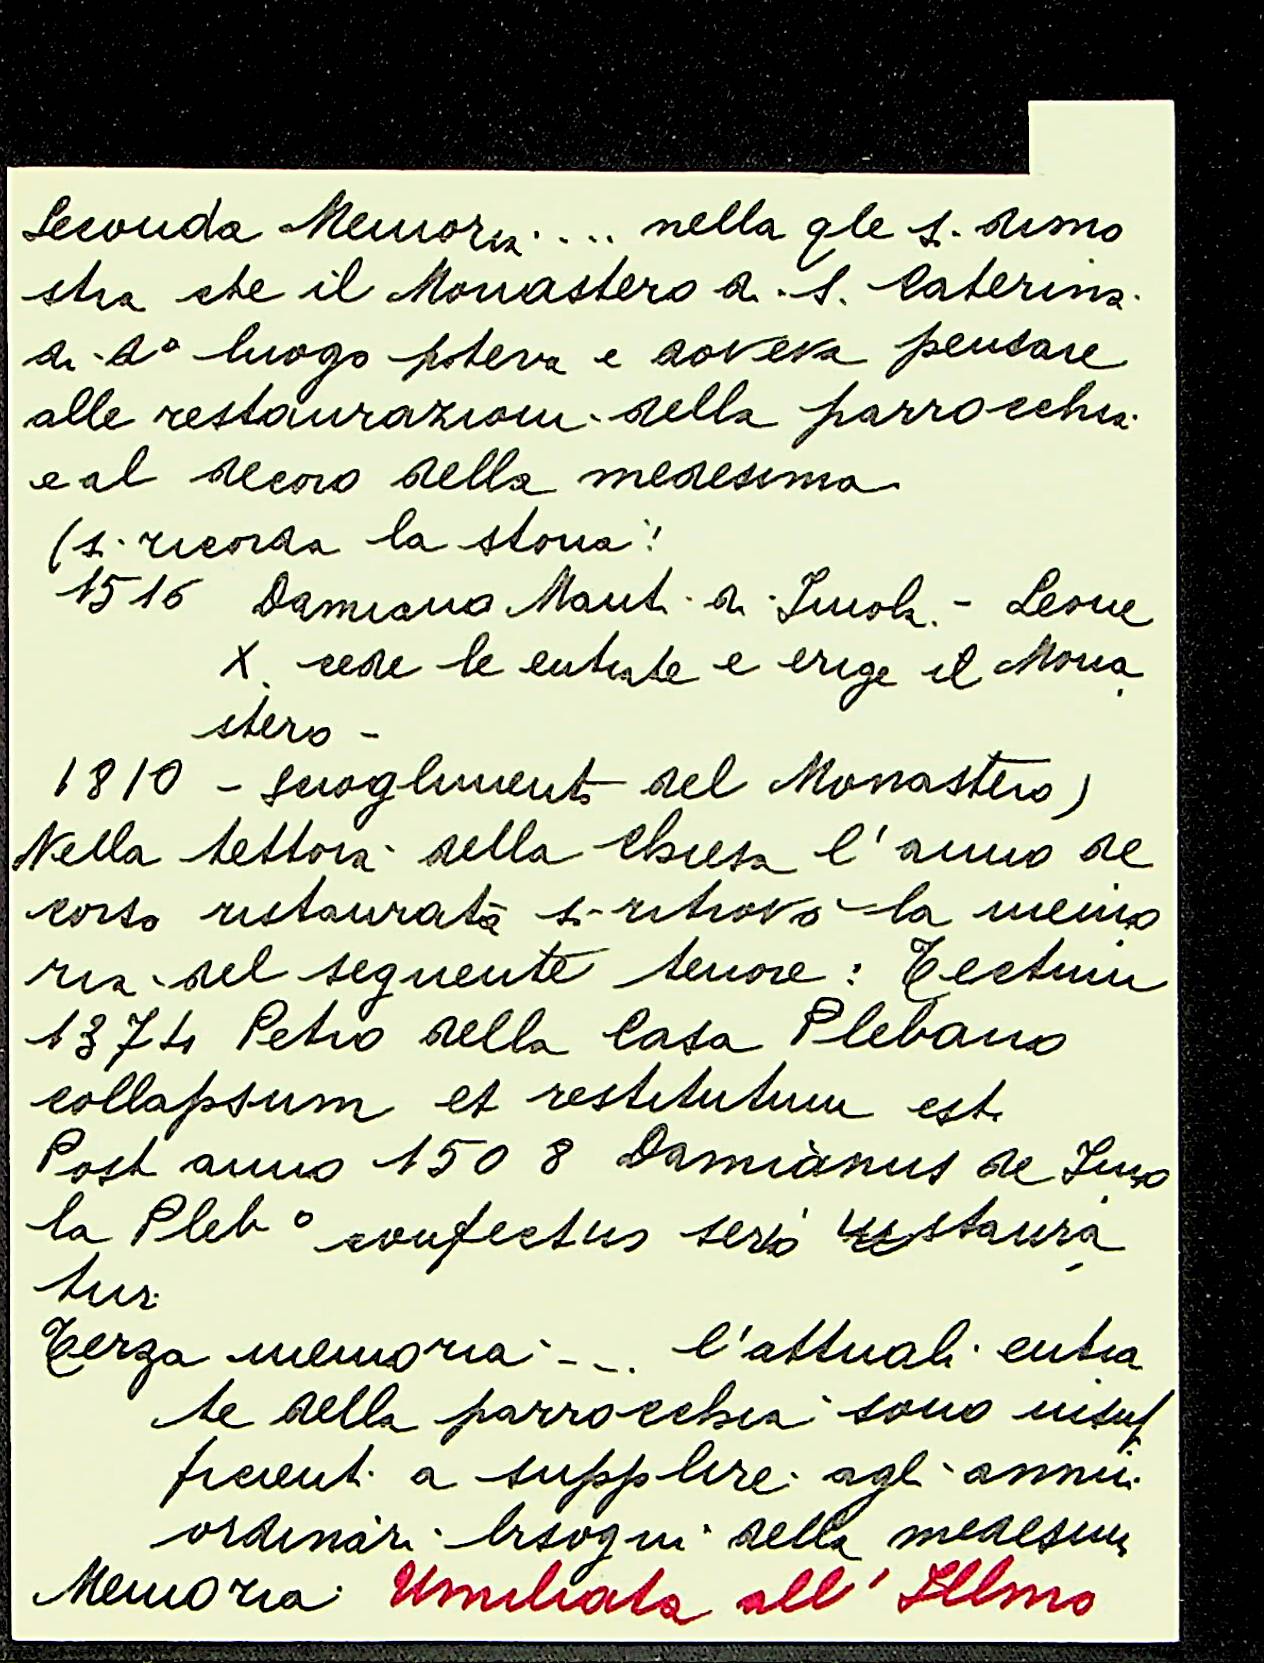 Seconda Memoria .... nella qle si dimo
stra che il Monastero di S. Caterina
di do luogo poteva e doveva pensare
alle restaurazioni della parrocchia
e al decoro della medesima
(si ricorda la storia:
1516 Damiano Mant. di Imola. - Leone
X. cede le entrate e erige il Mona
stero -
1810 - scioglimento del Monastero)
Nella tettoia della Chiesa l'anno de
corso restaurata si ritrovò la memo
ria del seguente tenore: Tectum
1374 Petro della Casa Plebano
collapsum et restitutum est.
Post anno 1508 Damiànus de Imo
la Pleb° confectus serio ristaura
tur.
Terza memoria - -. l'attuali entra
te della parrocchia sono insuf
ficienti a supplire agli annui
ordinari bisogni della medesima
Memoria Umiliata all' Illmo